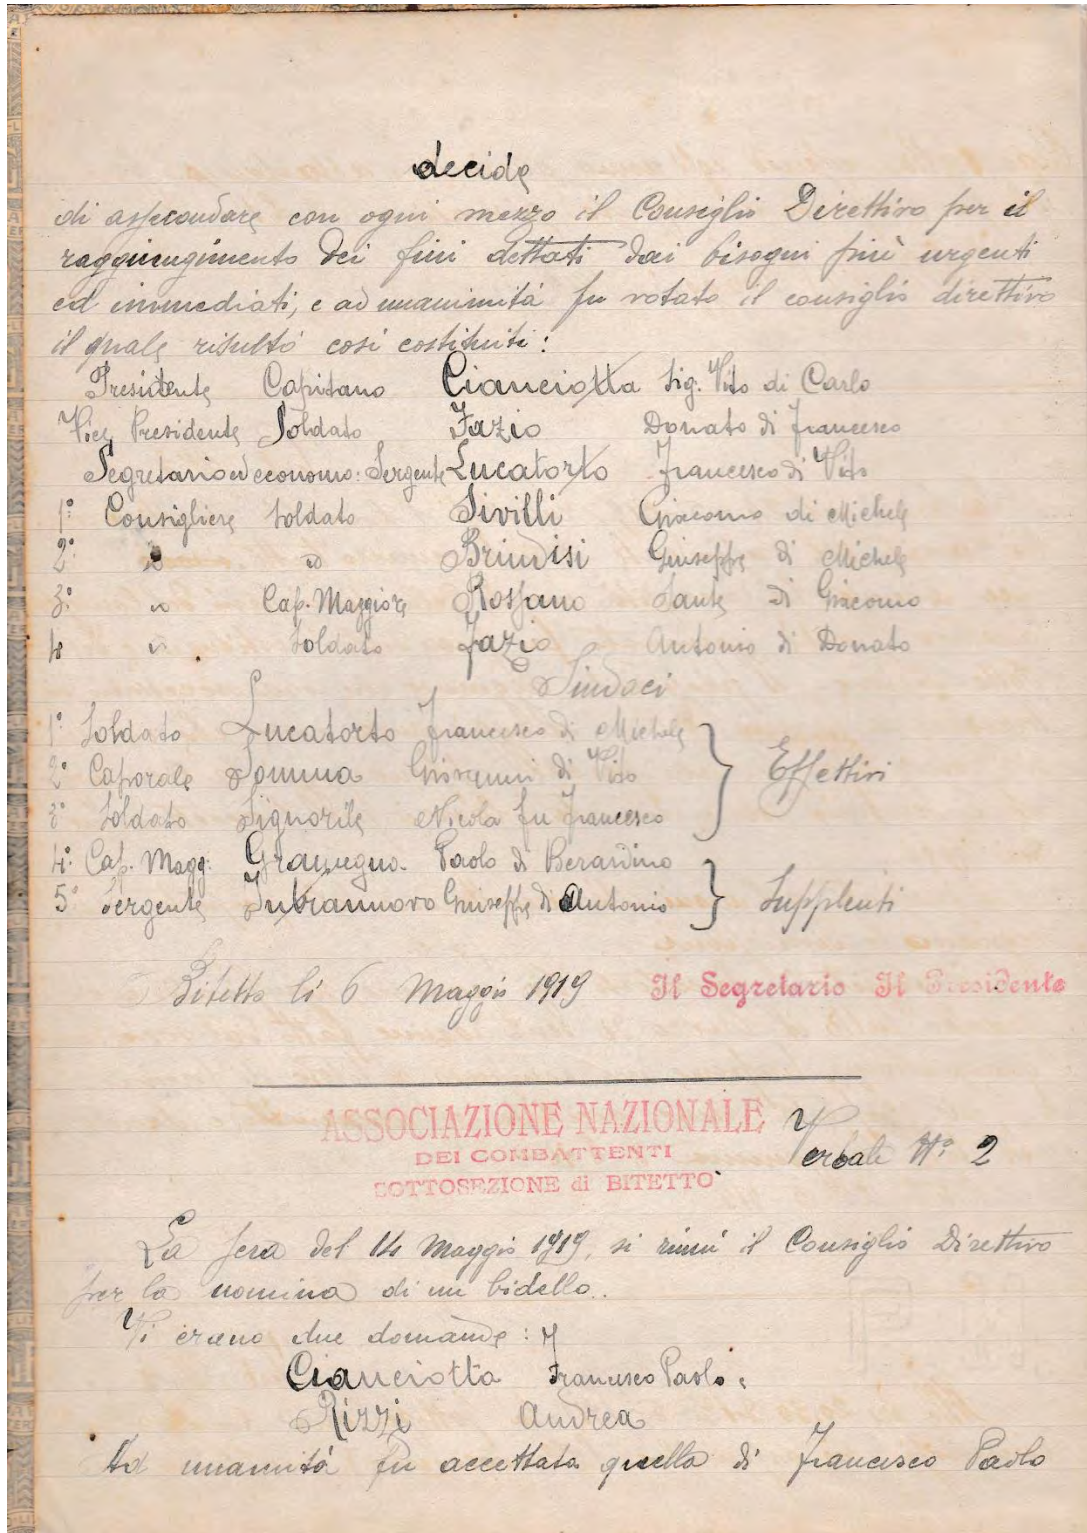 decide
di assecondare con ogni mezzo il Consiglio Direttivo per il
raggiungimento dei fini dettati dai bisogni più urgenti
ed immediati, e ad unanimità fu votato il consiglio direttivo
il quale risultò così costituiti:
Presidente Capitano Cianciotta Sig. Vito di Carlo
Vice Presidente Soldato Fazio Donato di Francesco
Segretario ed economo: Sergente Lucatorto Francesco di Vito
1º: Consigliere Soldato Sivilli Giacomo di Michele
2º: " " Brindisi Giuseppe di Michele
3º: " Cap. Maggiore Rossano Sante di Giacomo
4 " Soldato Fazio Antonio di Donato
Sindaci
1º Soldato Lucatorto Francesco di Michele
2º Caporale Somma Giovanni di Vito Effettivi
3º Soldato Signorile Nicola fu Francesco
4º: Cap. Magg: Gramegna Paolo di Berardino
5º Sergente Intrannovo Giuseppe di Antonio Supplenti
Bitetto lì 6 Maggio 1919 Il Segretario Il Presidente
ASSOCIAZIONE NAZIONALE
DEI COMBATTENTI
SOTTOSEZIONE di BITETTO
Verbale Nº: 2
La sera del 14 Maggio 1919, si riunì il Consiglio Direttivo
per la nomina di un bidello..
Vi erano due domande:
Cianciotta Francesco Paolo;
Rizzi Andrea
Ad unanimità fu accettata quella di Francesco Paolo